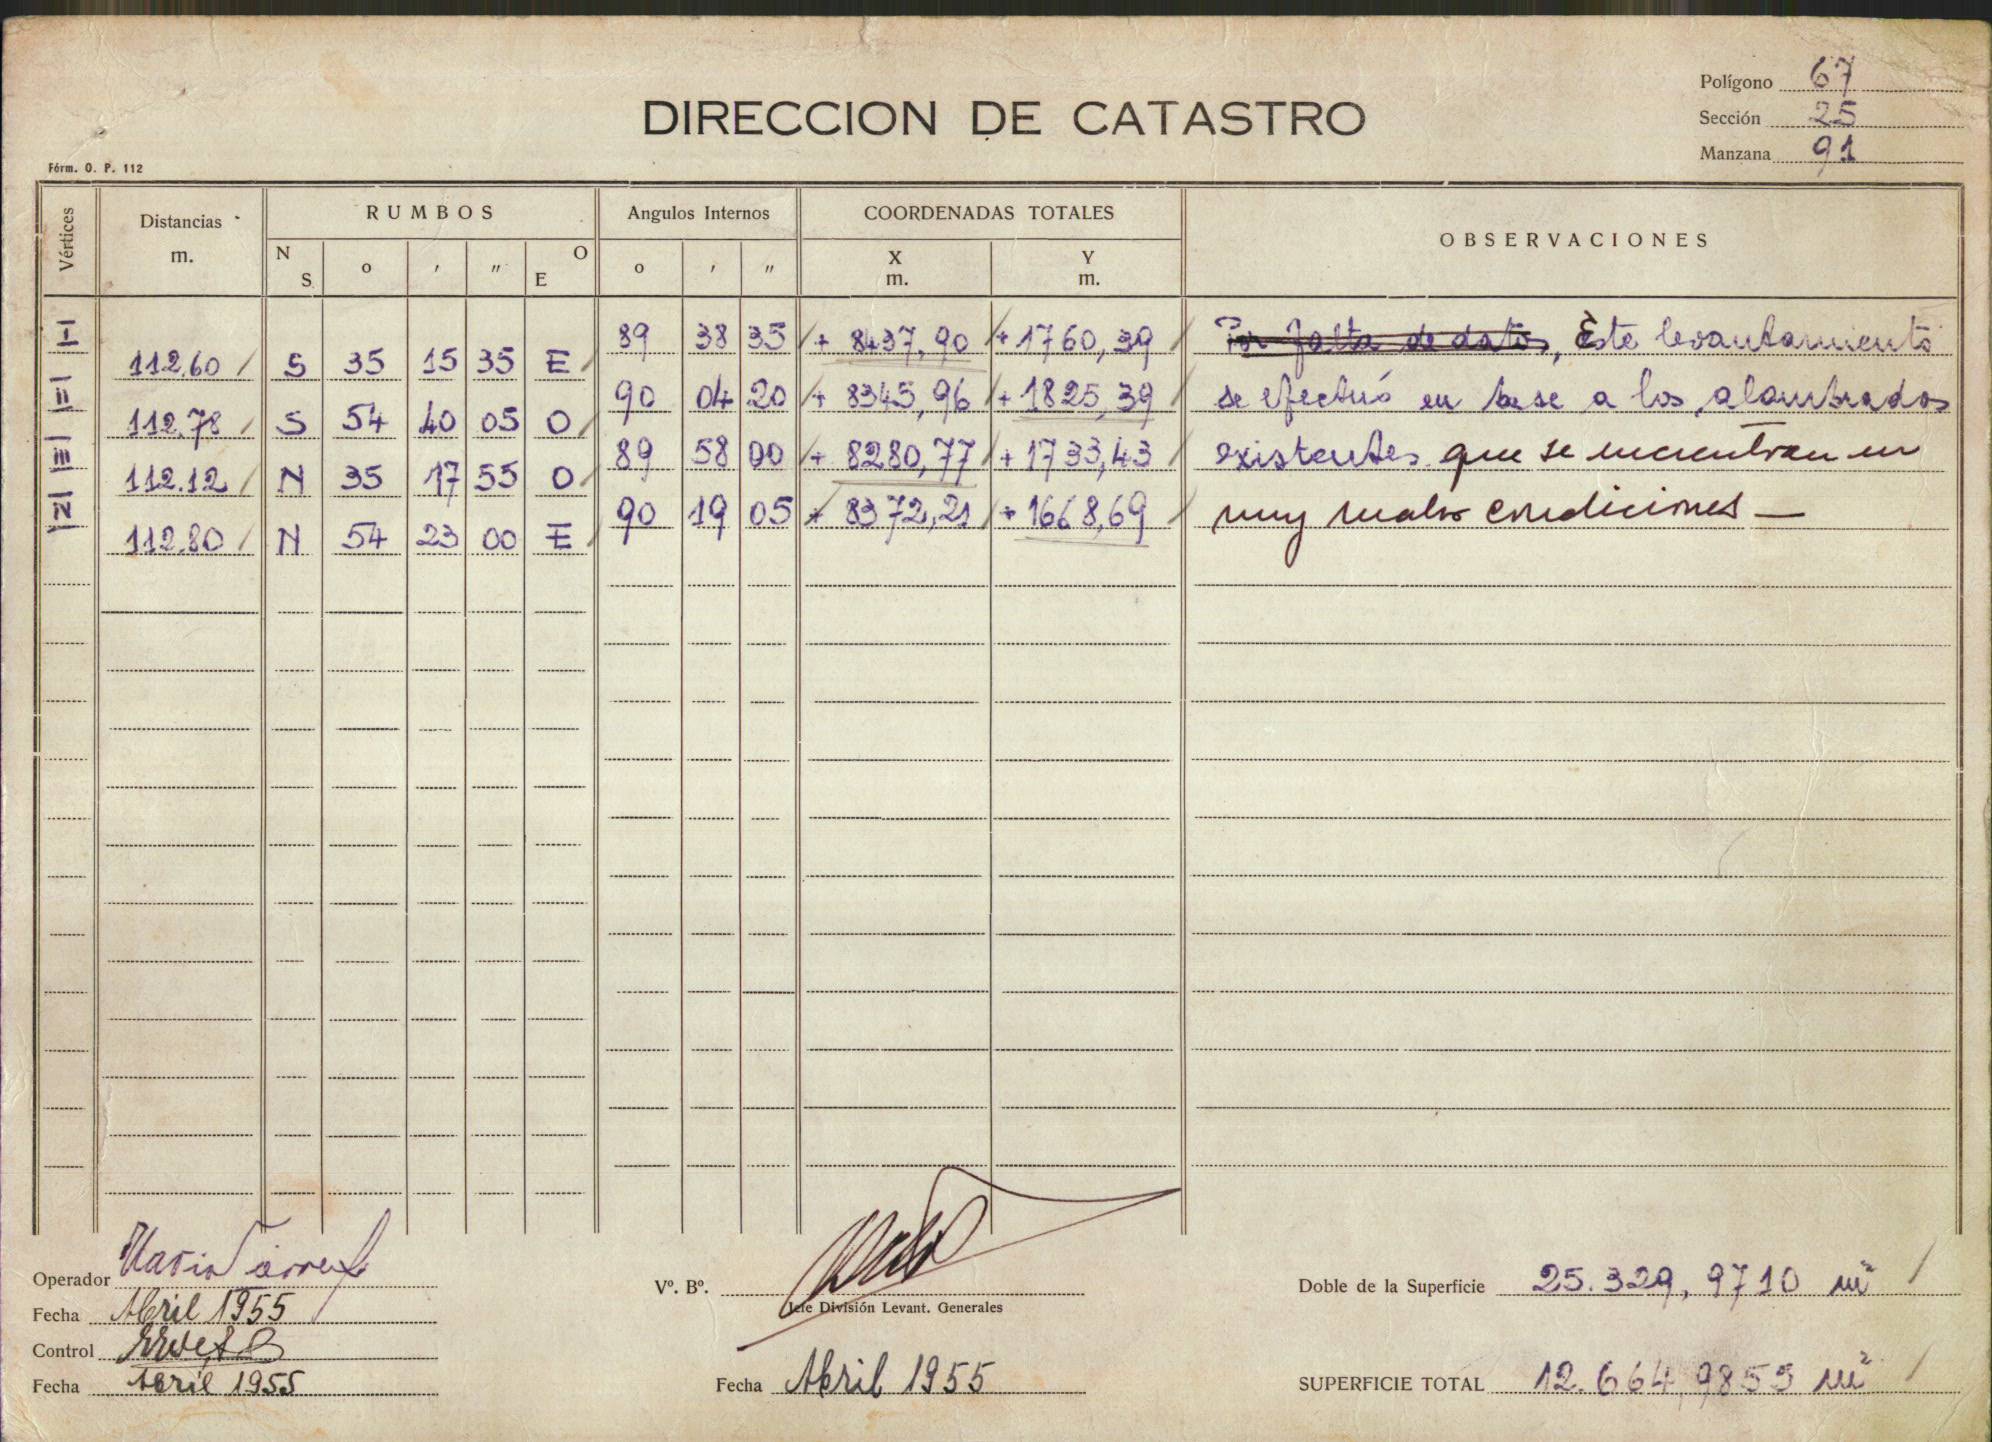 Polígono 67
DIRECCION DE CATASTRO
Sección 25
Manzana 91
Fórm. O. P. 112
Vértices Distancias m. RUMBOS Angulos Internos COORDENADAS TOTALES OBSERVACIONES
N S o ′ ″ O E o ′ ″ X m. Y m.
I 89 38 35 + 8437,90 + 1760,39 Por falta de datos, Este levantamiento
112.60 S 35 15 35 E
II 90 04 20 + 8345,96 + 1825,39 se efectuó en base a los alambrados
112.78 S 54 40 05 O
III 89 58 00 + 8280,77 + 1733,43 existentes que se encuentran en
112.12 N 35 17 55 O
IV 90 19 05 + 8372,21 + 1668,69 muy malas condiciones —
112.80 N 54 23 00 E
Operador
Vº. Bº.
Doble de la Superficie 25.329,9710 m²
Fecha Abril 1955
Jefe División Levant. Generales
Control
Fecha Abril 1955
Fecha Abril 1955
SUPERFICIE TOTAL 12.664,9855 m²